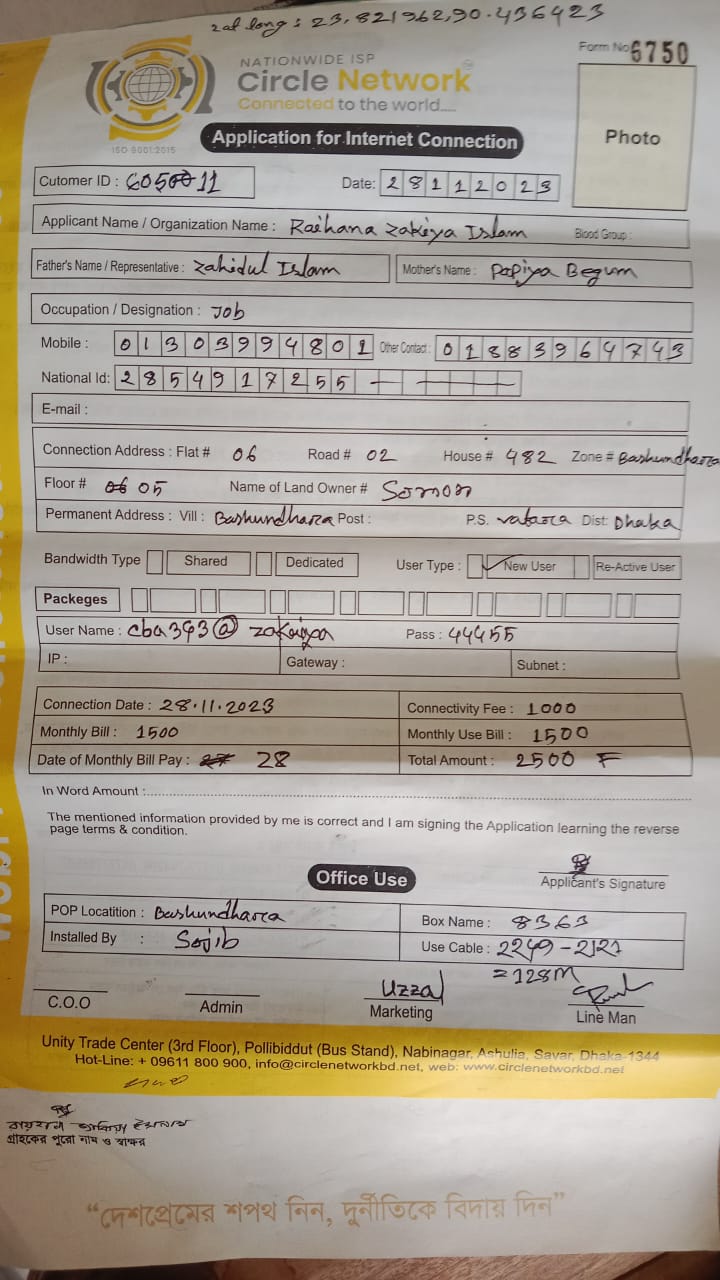 Lat long : 23.821962,90.436423
Form No 6750
NATIONWIDE ISP
Circle Network
Connected to the world....
ISO 9001:2015
Application for Internet Connection
Photo
Cutomer ID : 11
Date: 28112023
Applicant Name / Organization Name : Raihana Zakiya Islam Blood Group :
Father's Name / Representative : Zahidul Islam Mother's Name : Papiya Begum
Occupation / Designation : Job
Mobile : 01303994801 Other Contact : 01883964743
National Id: 2854917255
E-mail :
Connection Address : Flat # 06 Road # 02 House # 482 Zone # Bashundhara
Floor # 05 Name of Land Owner #
Permanent Address : Vill : Bashundhara Post : P.S. vatara Dist: Dhaka
Bandwidth Type Shared Dedicated User Type : New User Re-Active User
Packeges
User Name : cba393@ Pass : 44455
IP : Gateway : Subnet :
Connection Date : 28.11.2023 Connectivity Fee : 1000
Monthly Bill : 1500 Monthly Use Bill : 1500
Date of Monthly Bill Pay : 28 Total Amount : 2500 F
In Word Amount :
The mentioned information provided by me is correct and I am signing the Application learning the reverse
page terms & condition.
Applicant's Signature
Office Use
POP Locatition : Bashundhara Box Name : 8363
Installed By : Sojib Use Cable : 2249-2121
=128M
Uzzal
C.O.O Admin Marketing Line Man
Unity Trade Center (3rd Floor), Pollibiddut (Bus Stand), Nabinagar, Ashulia, Savar, Dhaka-1344
Hot-Line: + 09611 800 900, info@circlenetworkbd.net, web: www.circlenetworkbd.net
গ্রাহকের পুরো নাম ও স্বাক্ষর
“দেশপ্রেমের শপথ নিন, দুর্নীতিকে বিদায় দিন”